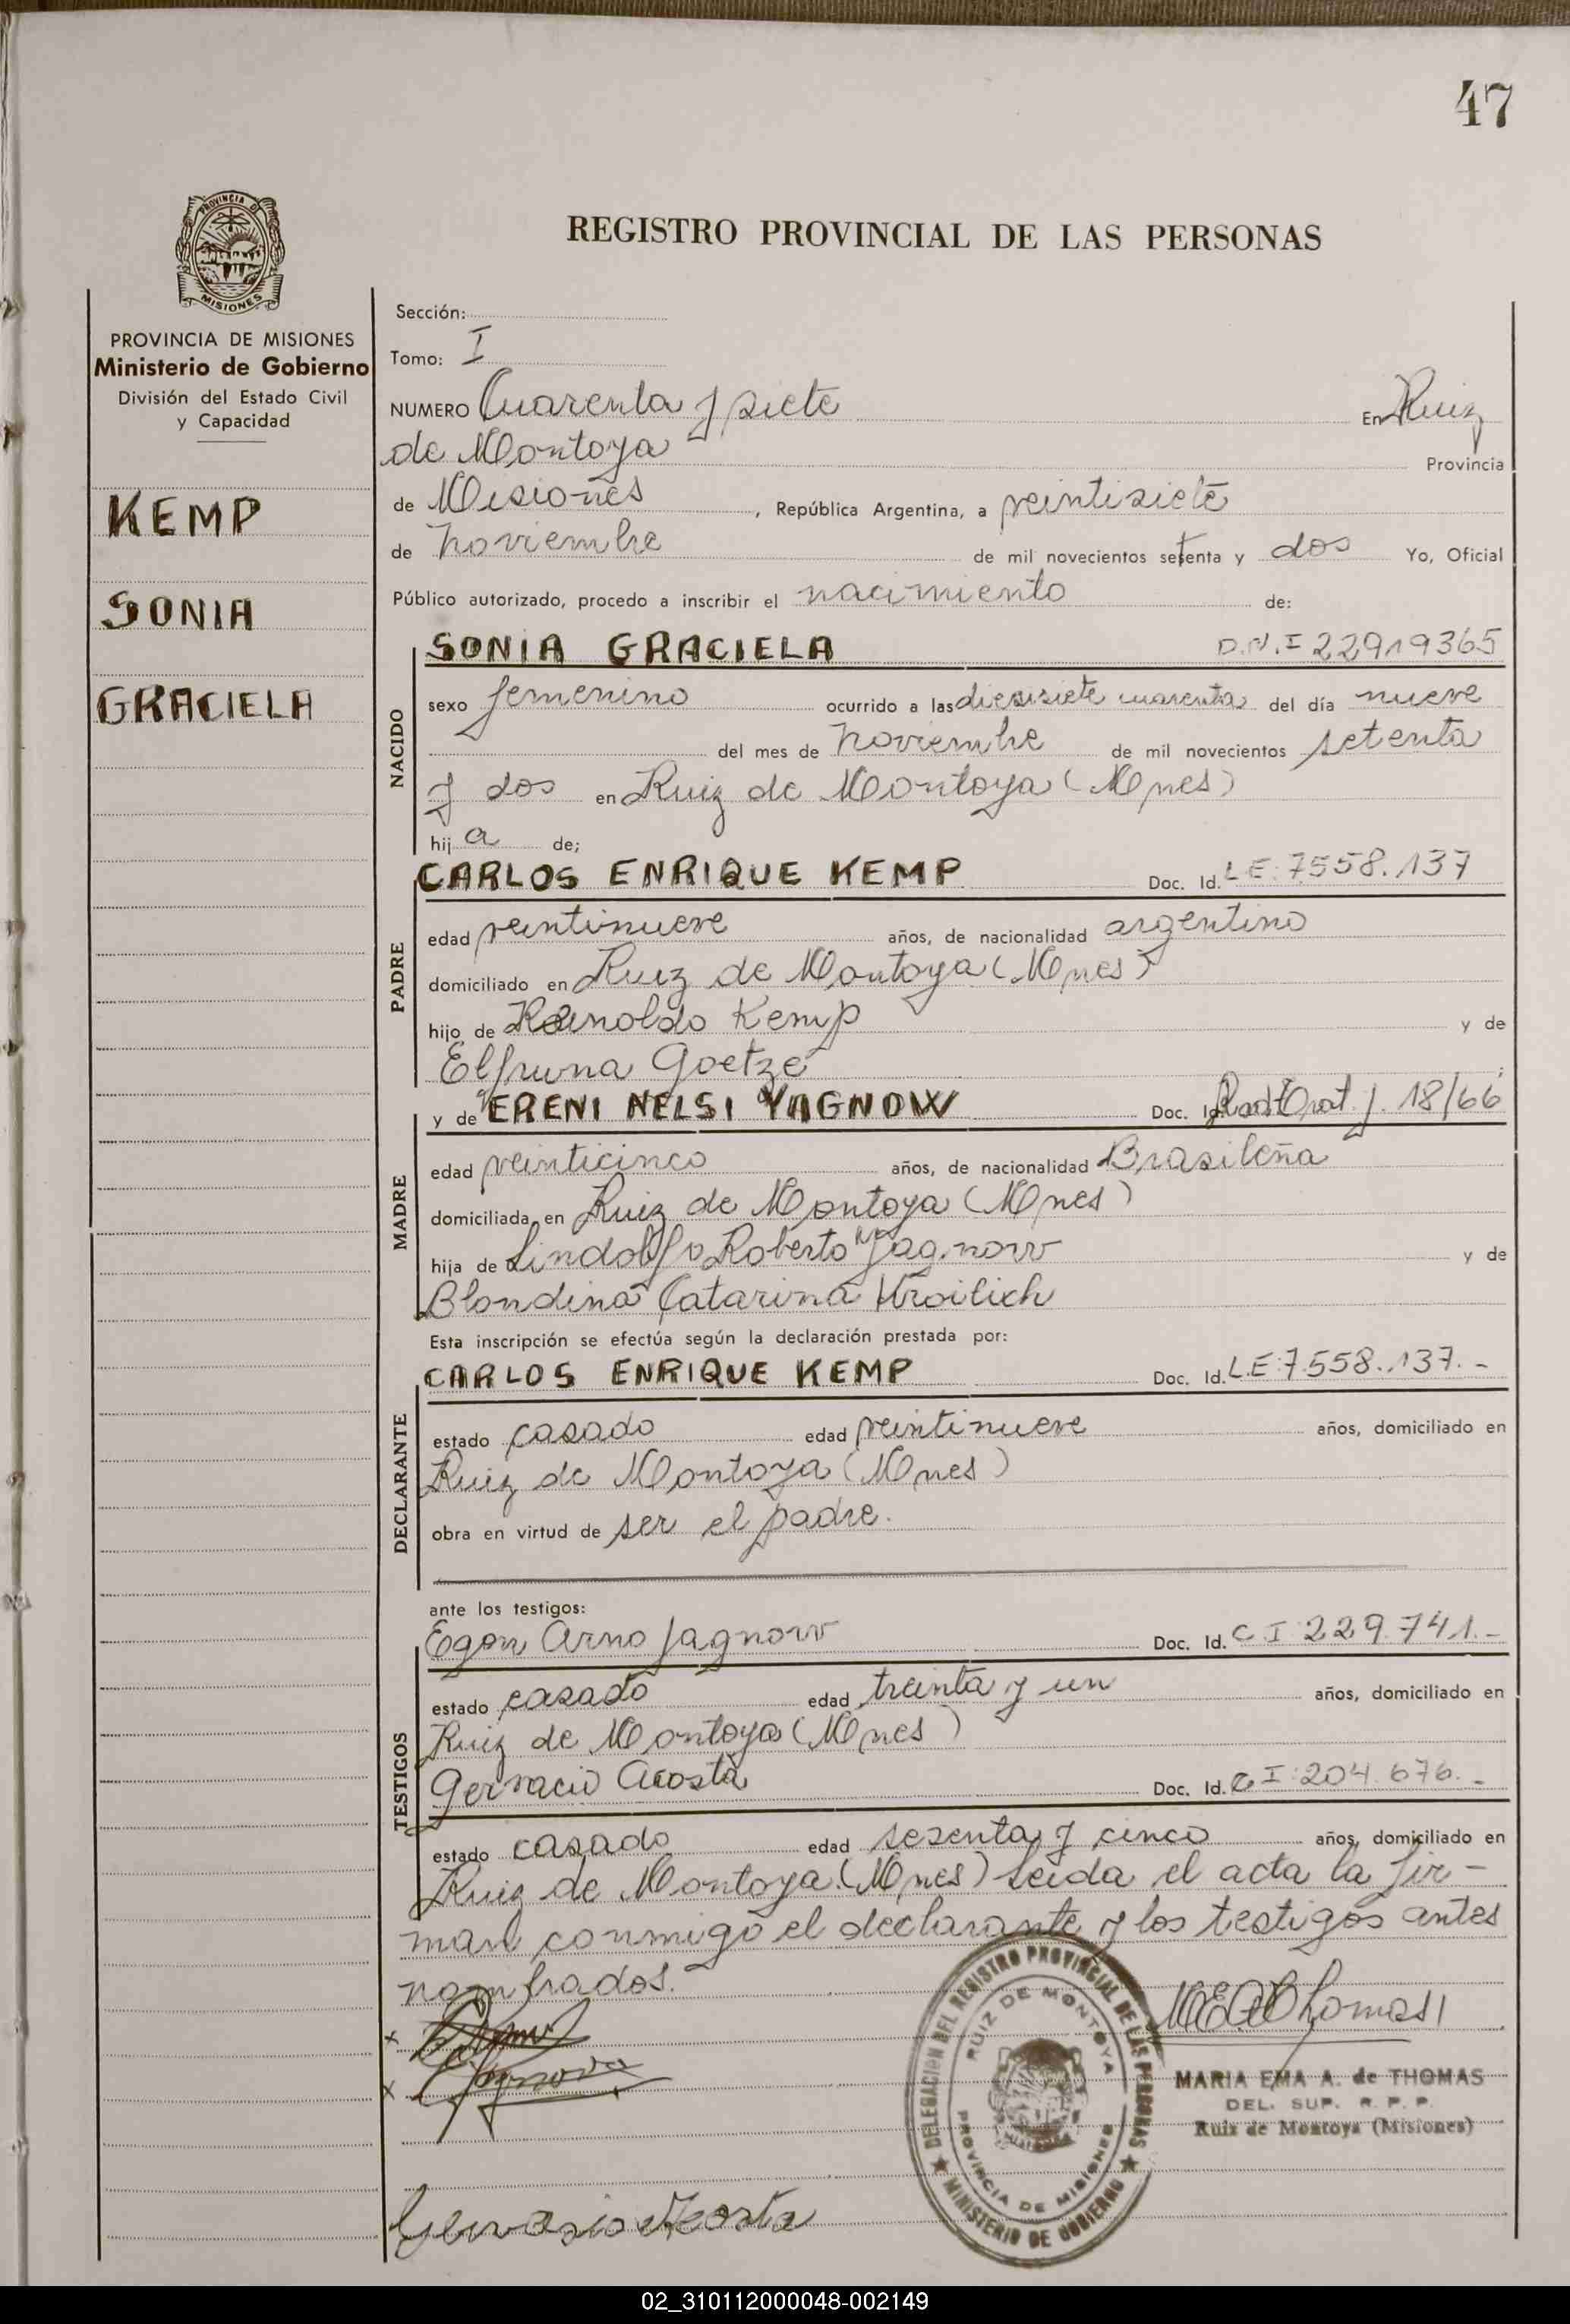 47
PROVINCIA DE
MISIONES
REGISTRO PROVINCIAL DE LAS PERSONAS
PROVINCIA DE MISIONES
Ministerio de Gobierno
División del Estado Civil
y Capacidad
KEMP
SONIA
GRACIELA
Sección:
Tomo: I
NUMERO Cuarenta y siete En Ruiz
de Montoya Provincia
de Misiones, República Argentina, a veintisiete
de Noviembre de mil novecientos setenta y dos Yo, Oficial
Público autorizado, procedo a inscribir el nacimiento de:
NACIDO
SONIA GRACIELA D.N.I 22919365
sexo femenino ocurrido a las diesisiete cuarenta del día nueve
del mes de Noviembre de mil novecientos setenta
y dos en Ruiz de Montoya (Mnes)
hija de;
PADRE
CARLOS ENRIQUE KEMP Doc. Id. LE: 7558.137
edad veintinueve años, de nacionalidad argentino
domiciliado en Ruiz de Montoya (Mnes)
hijo de Reinoldo Kemp y de
Elfruna Goetze ;
MADRE
y de ERENI NELSI YAGNOW Doc. Id. 18/66
edad veinticinco años, de nacionalidad Brasileña
domiciliada en Ruiz de Montoya (Mnes)
hija de Lindolfo Roberto Jagnow y de
Blondina Catarina Kroilich
Esta inscripción se efectúa según la declaración prestada por:
DECLARANTE
CARLOS ENRIQUE KEMP Doc. Id. L.E: 7.558.137.-
estado casado edad veintinueve años, domiciliado en
Ruiz de Montoya (Mnes)
obra en virtud de ser el padre.
ante los testigos:
TESTIGOS
Egon Arno Jagnow Doc. Id. C I: 229.741.-
estado casado edad treinta y un años, domiciliado en
Ruiz de Montoya (Mnes)
Gervacio Acosta Doc. Id. C I: 204.676.-
estado casado edad sesenta y cinco años, domiciliado en
Ruiz de Montoya (Mnes) Leida el acta la fir-
man conmigo el declarante y los testigos antes
nombrados.
x
x Jagnow
Gervasio Acosta
DELEGACION DEL REGISTRO PROVINCIAL DE LAS PERSONAS
RUIZ DE MONTOYA
PROVINCIA DE MISIONES
MINISTERIO DE GOBIERNO
MARIA EMA A. de THOMAS
DEL. SUP. R. P. P.
Ruiz de Montoya (Misiones)
02_310112000048-002149